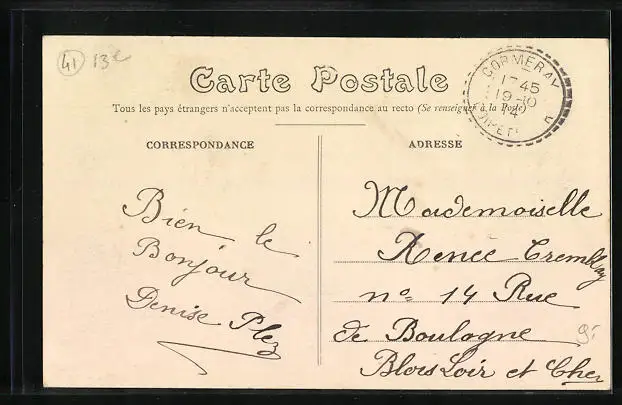 41 13e
Carte Postale
Tous les pays étrangers n'acceptent pas la correspondance au recto (Se renseigner à la Poste)
CORMERAY
17 45
19-10
14
CORRESPONDANCE
ADRESSE
Bien le
Bonjour
Denise
Mademoiselle
Renée Tremblay
n° 14 Rue
de Boulogne
Blois Loir et Cher